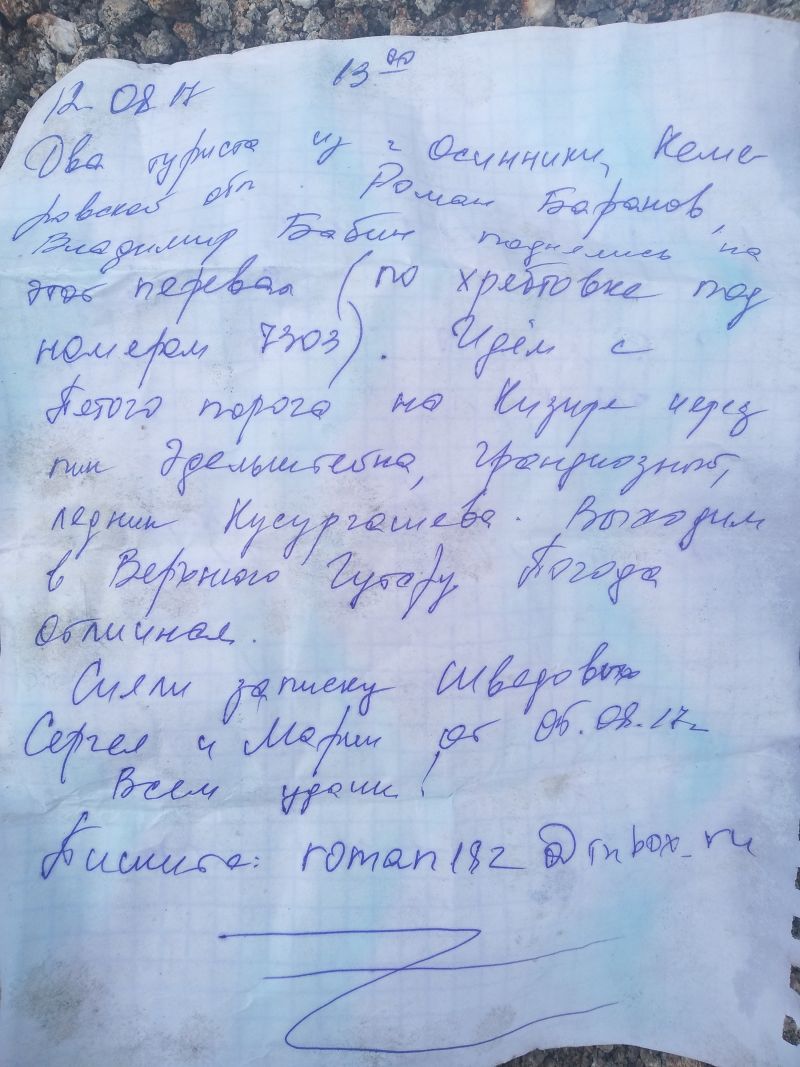 12 08 17 13 00
Два туриста из г Осинники, Кеме-
ровской обл. Роман Баранов,
Владимир Бабин поднялись на
этот перевал (по хребтовке под
номером 7303). Идём с
Пятого порога на Кизире через
пик Эдельштейна, Грандиозный,
ледник Кусургашева. Выходим
в Верхнюю Гутару. Погода
отличная.
Сняли записку Шведовых
Сергея и Марии от 05.08.17г
Всем удачи!
Пишите: roman182@inbox.ru